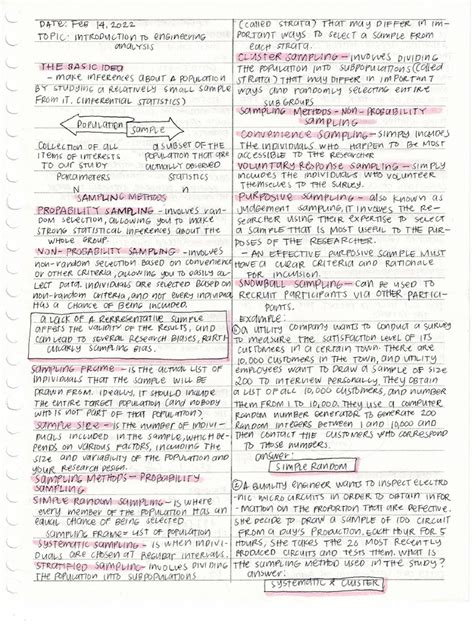 DATE: FEB 14, 2022
TOPIC: INTRODUCTION TO ENGINEERING
ANALYSIS
THE BASIC IDEA
- MAKE INFERENCES ABOUT A POPULATION
BY STUDYING A RELATIVELY SMALL SAMPLE
FROM IT. (INFERENTIAL STATISTICS)
POPULATION SAMPLE
COLLECTION OF ALL A SUBSET OF THE
ITEMS OF INTERESTS POPULATION THAT ARE
TO OUR STUDY ACTUALLY OBSERVED
PARAMETERS STATISTICS
N n
SAMPLING METHODS
PROBABILITY SAMPLING - INVOLVES RAN-
DOM SELECTION, ALLOWING YOU TO MAKE
STRONG STATISTICAL INFERENCES ABOUT THE
WHOLE GROUP.
NON-PROBABILITY SAMPLING - INVOLVES
NON-RANDOM SELECTION BASED ON CONVENIENCE
OR OTHER CRITERIA, ALLOWING YOU TO EASILY COL-
LECT DATA. INDIVIDUALS ARE SELECTED BASED ON
NON-RANDOM CRITERIA, AND NOT EVERY INDIVIDUAL
HAS A CHANCE OF BEING INCLUDED.
A LACK OF A REPRESENTATIVE SAMPLE
AFFECTS THE VALIDITY OF THE RESULTS, AND
CAN LEAD TO SEVERAL RESEARCH BIASES, PARTI-
CULARLY SAMPLING BIAS.
SAMPLING FRAME - IS THE ACTUAL LIST OF
INDIVIDUALS THAT THE SAMPLE WILL BE
DRAWN FROM. IDEALLY, IT SHOULD INCLUDE
THE ENTIRE TARGET POPULATION (AND NOBODY
WHO IS NOT PART OF THAT POPULATION)
SAMPLE SIZE - IS THE NUMBER OF INDIVI-
DUALS INCLUDED IN THE SAMPLE, WHICH DE-
PENDS ON VARIOUS FACTORS, INCLUDING THE
SIZE AND VARIABILITY OF THE POPULATION AND
YOUR RESEARCH DESIGN.
SAMPLING METHODS - PROBABILITY
SAMPLING
SIMPLE RANDOM SAMPLING - IS WHERE
EVERY MEMBER OF THE POPULATION HAS AN
EQUAL CHANCE OF BEING SELECTED
SAMPLING FRAME = LIST OF POPULATION
SYSTEMATIC SAMPLING - IS WHEN INDIVI-
DUALS ARE CHOSEN AT REGULAR INTERVALS.
STRATIFIED SAMPLING - INVOLVES DIVIDING
THE POPULATION INTO SUBPOPULATIONS
(CALLED STRATA) THAT MAY DIFFER IN IM-
PORTANT WAYS TO SELECT A SAMPLE FROM
EACH STRATA.
CLUSTER SAMPLING - INVOLVES DIVIDING
THE POPULATION INTO SUBPOPULATIONS (CALLED
STRATA) THAT MAY DIFFER IN IMPORTANT
WAYS AND RANDOMLY SELECTING ENTIRE
SUBGROUPS
SAMPLING METHODS - NON-PROBABILITY
SAMPLING
CONVENIENCE SAMPLING - SIMPLY INCLUDES
THE INDIVIDUALS WHO HAPPEN TO BE MOST
ACCESSIBLE TO THE RESEARCHER
VOLUNTARY RESPONSE SAMPLING - SIMPLY
INCLUDES THE INDIVIDUALS WHO VOLUNTEER
THEMSELVES TO THE SURVEY.
PURPOSIVE SAMPLING - ALSO KNOWN AS
JUDGEMENT SAMPLING, IT INVOLVES THE RE-
SEARCHER USING THEIR EXPERTISE TO SELECT
A SAMPLE THAT IS MOST USEFUL TO THE PUR-
POSES OF THE RESEARCHER.
- AN EFFECTIVE PURPOSIVE SAMPLE MUST
HAVE A CLEAR CRITERIA AND RATIONALE
FOR INCLUSION.
SNOWBALL SAMPLING - CAN BE USED TO
RECRUIT PARTICIPANTS VIA OTHER PARTICI-
PANTS.
EXAMPLE:
① A UTILITY COMPANY WANTS TO CONDUCT A SURVEY
TO MEASURE THE SATISFACTION LEVEL OF ITS
CUSTOMERS IN A CERTAIN TOWN. THERE ARE
10,000 CUSTOMERS IN THE TOWN, AND UTILITY
EMPLOYEES WANT TO DRAW A SAMPLE OF SIZE
200 TO INTERVIEW PERSONALLY. THEY OBTAIN
A LIST OF ALL 10,000 CUSTOMERS, AND NUMBER
THEM FROM 1 TO 10,000. THEY USE A COMPUTER
RANDOM NUMBER GENERATOR TO GENERATE 200
RANDOM INTEGERS BETWEEN 1 AND 10,000 AND
THEN CONTACT THE CUSTOMERS WHO CORRESPOND
TO THOSE NUMBERS.
ANSWER:
SIMPLE RANDOM
② A QUALITY ENGINEER WANTS TO INSPECT ELECTRO-
NIC MICROCIRCUITS IN ORDER TO OBTAIN INFOR-
MATION ON THE PROPORTION THAT ARE DEFECTIVE.
SHE DECIDE TO DRAW A SAMPLE OF 100 CIRCUIT
FROM A DAY'S PRODUCTION. EACH HOUR FOR 5
HOURS, SHE TAKES THE 20 MOST RECENTLY
PRODUCED CIRCUITS AND TESTS THEM. WHAT IS
THE SAMPLING METHOD USED IN THE STUDY?
ANSWER:
SYSTEMATIC & CLUSTER